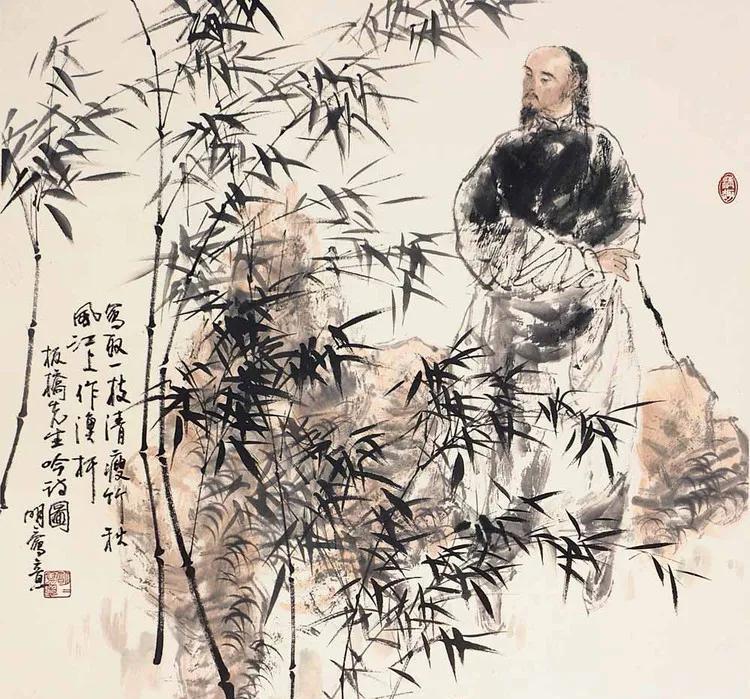 寫取一枝清瘦竹秋
風江上作漁杆
板橋先生吟诗圖
明